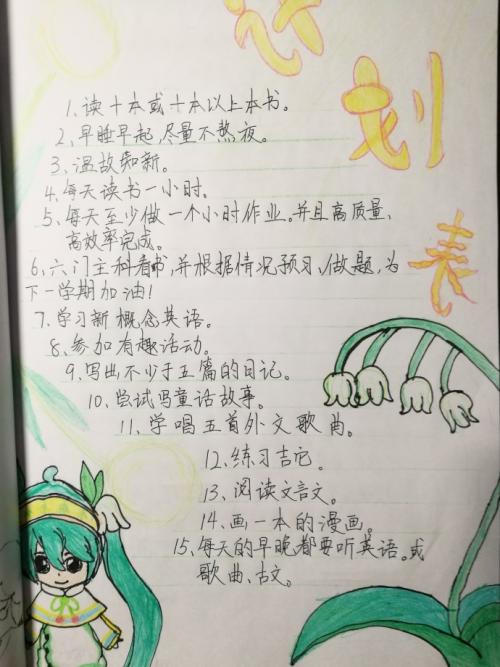 计划表
1、读十本或十本以上本书。
2、早睡早起,尽量不熬夜。
3、温故知新。
4、每天读书一小时。
5、每天至少做一个小时作业。并且高质量、
高效率完成。
6、六门主科看书,并根据情况预习、做题,为
下一学期加油!
7、学习新概念英语。
8、参加有趣活动。
9、写出不少于五篇的日记。
10、尝试写童话故事。
11、学唱五首外文歌曲。
12、练习吉它。
13、阅读文言文。
14、画一本的漫画。
15、每天的早晚都要听英语。或
歌曲、古文。